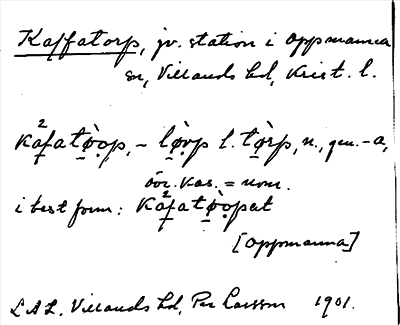 Kaffatorp, jv. station i Oppmanna
sn, Villands hd, Krist. l.
kafatø̀ọp, – lø̀rp l. tø̀rp, n., gen. –a,
öv. kas. = nom.
i best form: kafatø̀ọpat
[Oppmanna]
L A L. Villands hd, Per Larsson 1901.